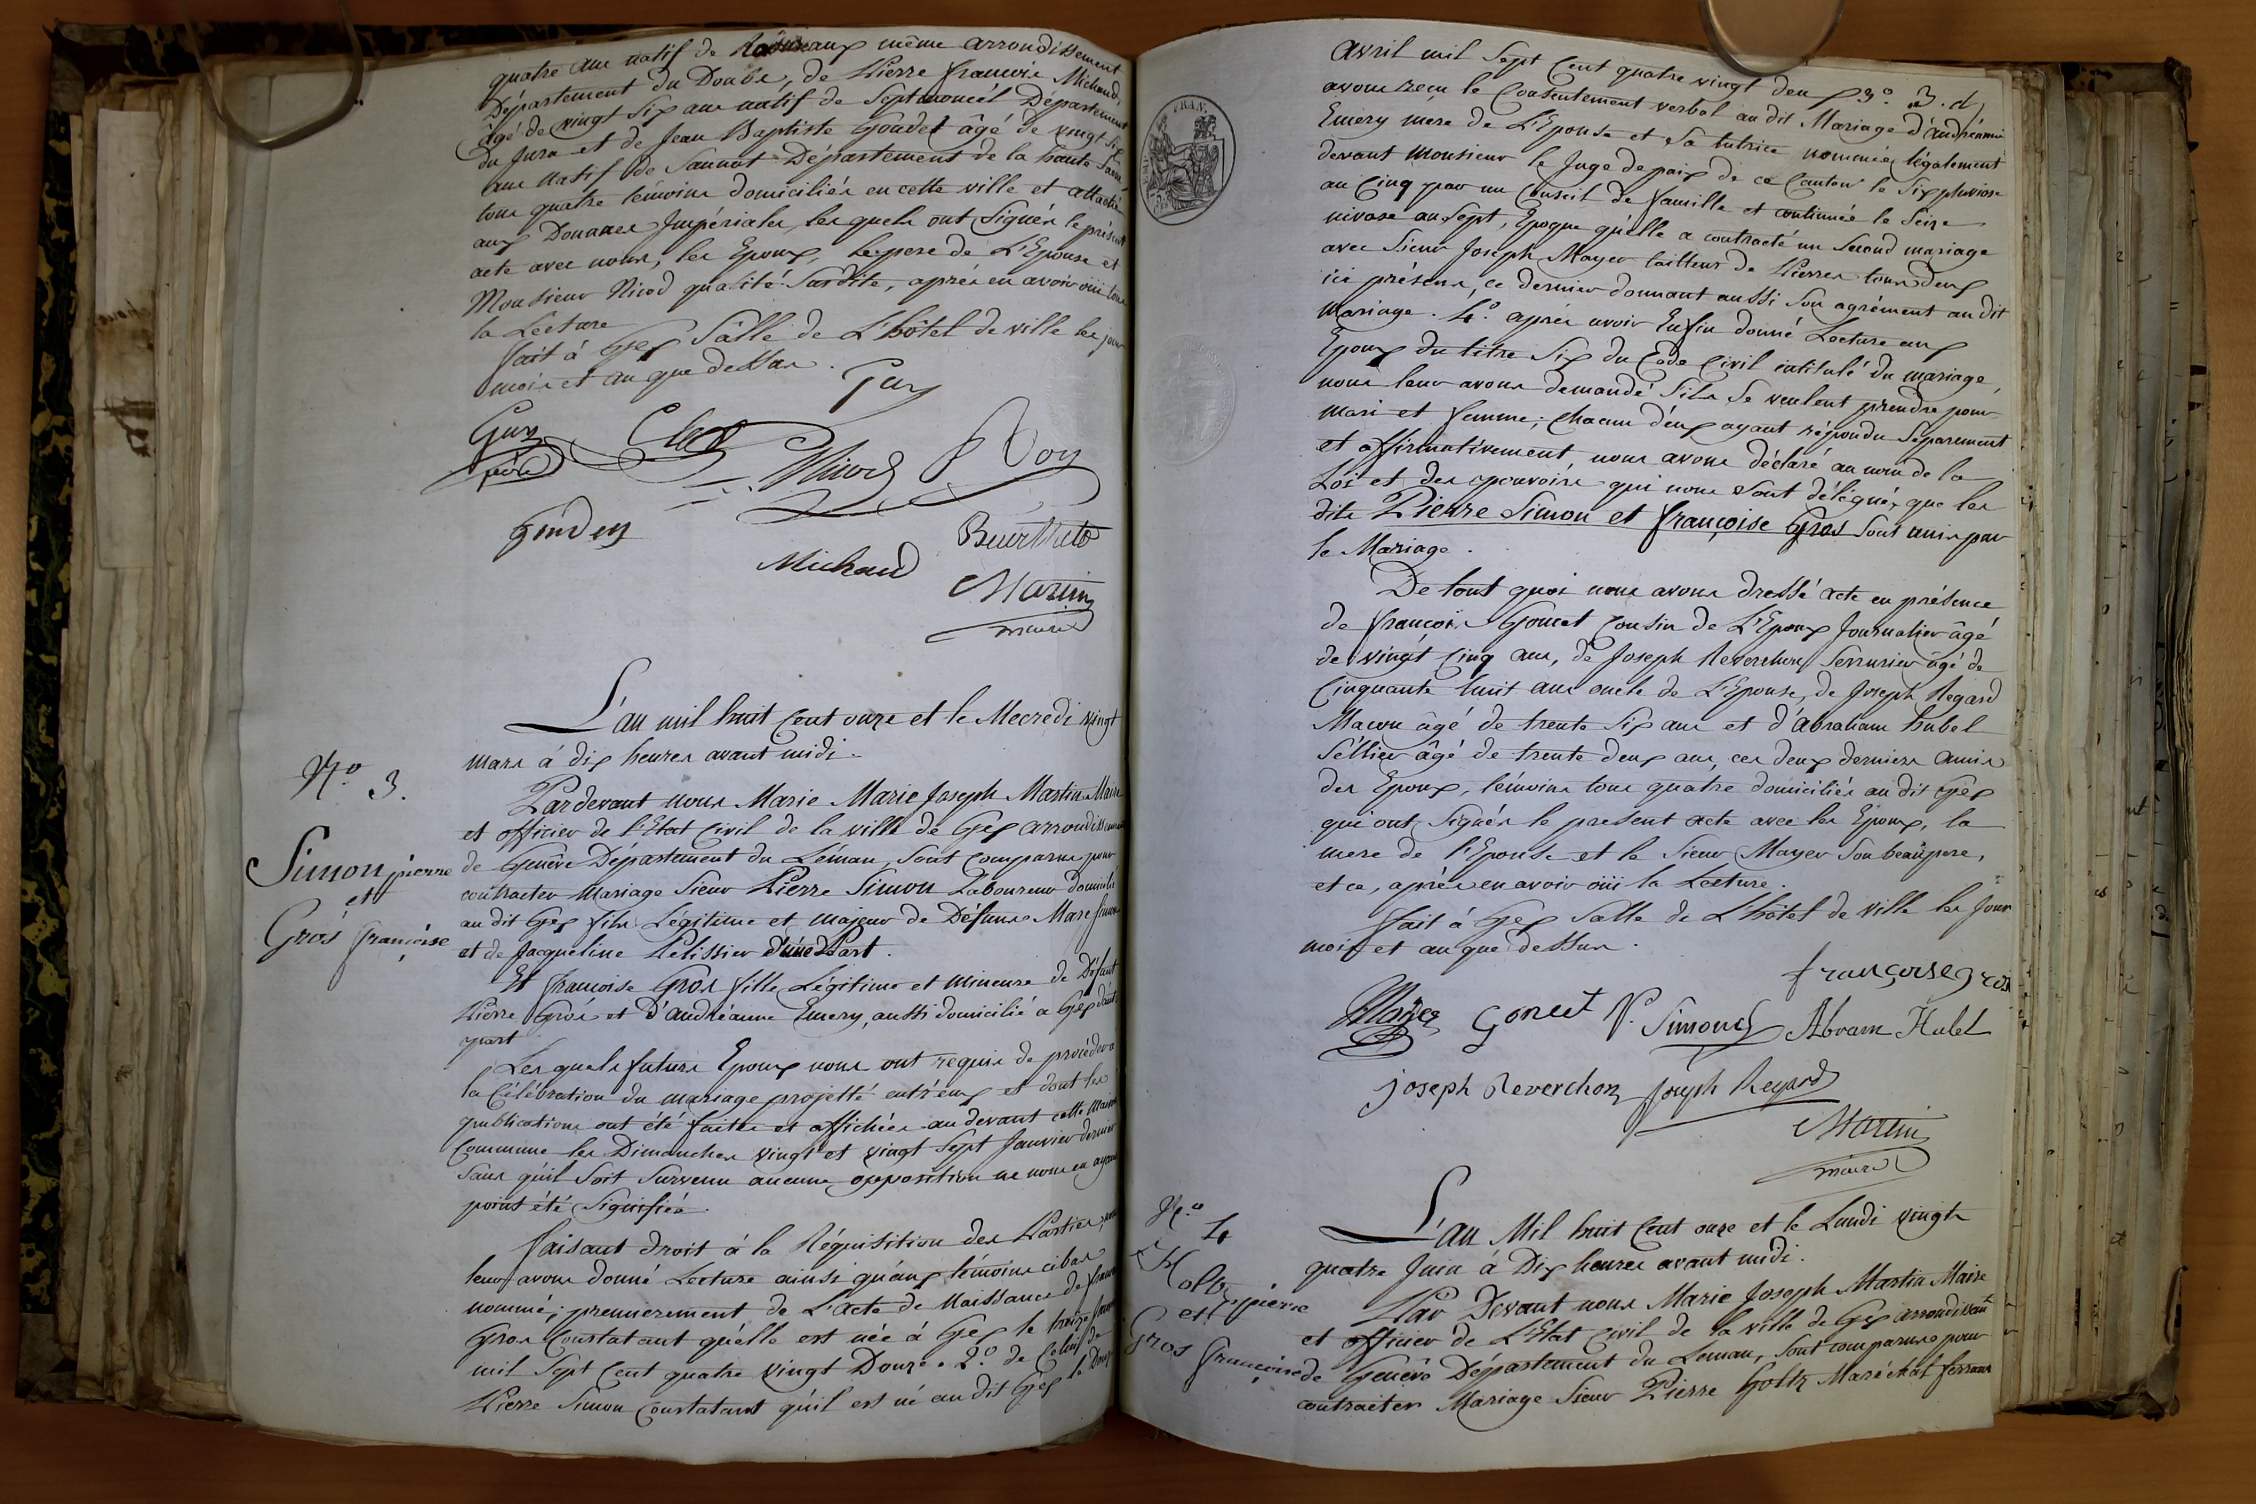 quatre ans natif de même arrondissement
Département du Doubs, de Pierre françois Michaud,
âgé de vingt six ans natif de Septmoncel Département
du Jura et de Jean Baptiste Goudet âgé de vingt six
ans natif de Département de la haute Saone,
tous quatre témoins domiciliés en cette ville et attachés
aux Douanes Impériales, les quels ont Signés le présent
acte avec nous, les Epoux, le pere de L'Epouse et
Monsieur Nicod qualité Susdite, après en avoir oui tous
la Lecture
fait à Gex Sâlle de L'hôtel de ville les jour
mois et an que dessus.
Guy
Guy
père
Clerc
Nicod
Roy
Michaud
Martin
maire
L'an mil huit Cent onze et le Mecredi vingt
mars à dix heures avant midi.
N.o 3.
Simon pierre
et
Gros françoise
Pardevant nous Marie Marie Joseph Martin Maire
et officier de l'Etat Civil de la ville de Gex arrondissement
de Genêve Département du Léman, Sont comparus pour
contracter Mariage Sieur Pierre Simon Laboureur domicilié
au dit Gex fils Légitime et majeur de Défunts Marc Simon
et de Jacqueline Pelissier d'une Part.
Et françoise Gros fille Légitime et mineure de Défunt
Pierre Gros et D'andréanne Emery, aussi domicilié a Gex d'autre
part
Les quels futurs Epoux nous ont requis de procéder a
la Célébration du mariage projetté entr'eux et dont les
publications ont été faites et affichées au devant cette Maison
Commune les Dimanches vingt et vingt Sept Janvier dernier
Sans qu'il Soit Survenu aucune opposition ne nous en ayant
point été Signifiée.
faisant droit à la Réquisition des Parties, nous
leur avons donné Lecture ainsi qu'aux témoins cibas
nommé; premierement de L'acte de Naissance de françoise
Gros Constatant qu'elle est née à Gex le treize
mil Sept Cent quatre vingt Douze. 2.o de Celui de
Pierre Simon Constatant qu'il est né au dit Gex le Douze
avril mil Sept Cent quatre vingt deux 3.o
avons reçu le Consentement verbal au dit Mariage d'andréanne
Emery mere de L'Epouse et Sa tutrice nommée légalement
devant Monsieur le Juge de paix de ce Canton le Six pluviose
an Cinq par un Conseil de famille et continuée le Seize
nivose an Sept, Epoque qu'elle a contracté un Second mariage
avec Sieur Joseph Mayer tailleur de Pierres tous deux
ici présens, ce dernier donnant aussi Son agrément au dit
mariage. 4.o après avoir Enfin donné Lecture aux
Epoux du titre Six du Code Civil intitulé du mariage,
nous leur avons demandé S'ils Se veulent prendre pour
mari et femme; chacun d'eux ayant répondu Séparement
et affirmativement, nous avons déclaré au nom de la
Loi et des pouvoirs qui nous Sont délégués, que les
dits Pierre Simon et françoise Gros Sont unis par
le Mariage.
De tout quoi nous avons dressé acte en présence
de françois Goncet Cousin de L'Epoux Journalier âgé
de vingt Cinq ans, de Joseph Reverchon Serrurier âgé de
Cinquante huit ans oncle de L'Epouse, de Joseph Regard
Macon âgé de trente Six ans et d'Abraham hubel
Séllier âgé de trente deux ans, ces deux derniers amis
des Epoux, témoins tous quatre domiciliés au dit Gex
qui ont Signés le present acte avec les Epoux, la
mere de l'Epouse et le Sieur Mayer Son beaupere,
et ce, après en avoir oüi la Lecture.
fait à Gex Salle de L'hôtel de ville les Jour
mois et an que dessus.
françoise gros
Mayer Goncet P. Simond Abram Hubel
joseph Reverchon Joseph Regard
Martin
maire
N.o 4
Holtz pierre
et
Gros françoise
L'an Mil huit Cent onze et le Lundi vingt
quatre Juin à Dix heures avant midi.
Par Devant nous Marie Joseph Martin Maire
et officier de L'Etat Civil de la ville de Gex arrondissemt
de Genêve Département du Leman, Sont comparus pour
contracter Mariage Sieur Pierre Holtz Maréchal ferrant